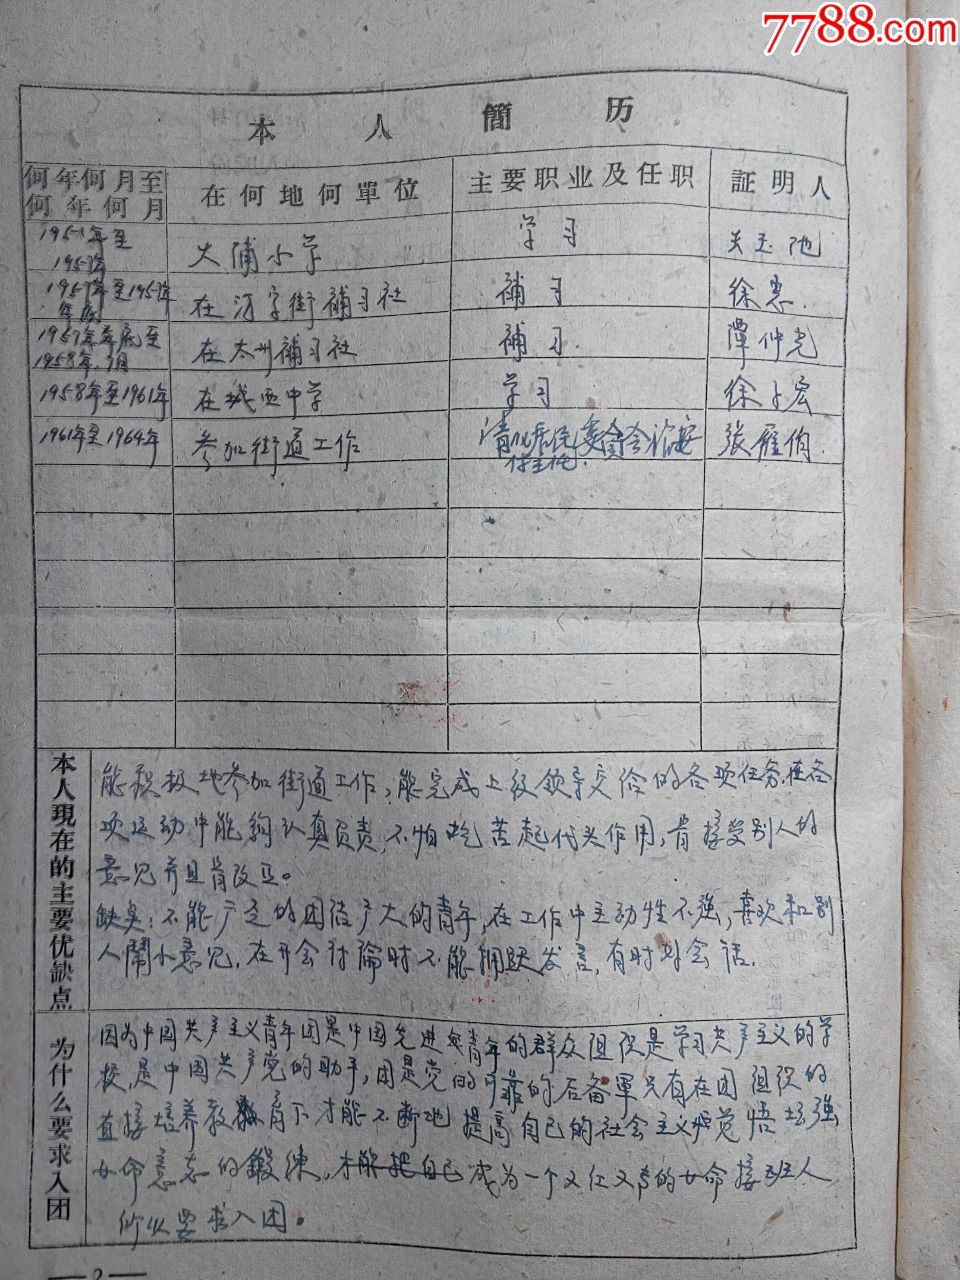 7788.com
本人簡历
何年何月至何年何月 在何地何單位 主要职业及任职 証明人
1951年至 大浦小学 学习
1957年 补习 徐惠
1957年至1957年年底 在 街補习社 補习
1957年年底至1958年9月 在太州補习社 補习 譚仲光
1958年至1961年 在城西中学 学习
1961年至1964年 参加街道工作 居民委員会治安付主任 張雁伯
本人現在的主要优缺点
能积极地参加街道工作,能完成上级领导交给的各项任务,在各
项运动中能夠认真负责,不怕吃苦起代头作用,肯接受别人的
意见并且肯改正。
缺点:不能广泛的团结广大的青年,在工作中主动性不強,喜欢和别
人鬧小意见,在开会讨論时不能拥跃发言,有时对会话.
为什么要求入团
因为中国共产主义青年团是中国先进青年的群众组织是学习共产主义的学
校,是中国共产党的助手,团是党的可靠的后备軍只有在团组织的
直接培养教育下才能不断地提高自己的社会主义觉悟坚強
革命意志的鍛練,才能把自己成为一个又红又专的革命接班人
所以要求入团。
2